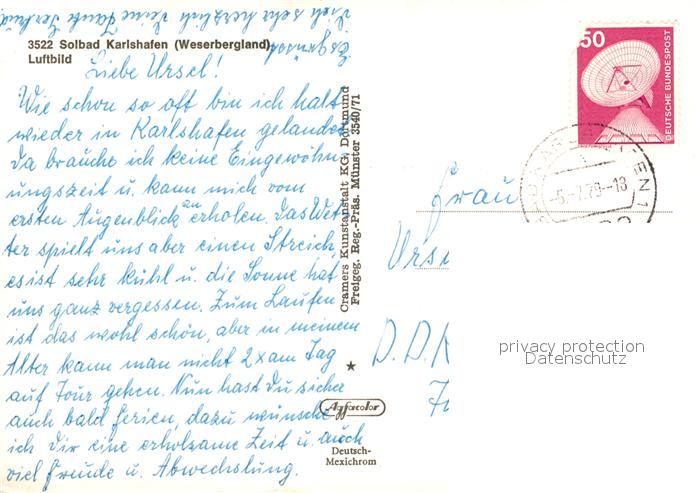 3522 Solbad Karlshafen (Weserbergland)
Luftbild
Liebe Ursel!
Wie schon so oft bin ich halt
wieder in Karlshafen gelandet
Da brauche ich keine Eingewöhn-
ungszeit u. kann mich vom
ersten Augenblick an erholen. Das Wet-
ter spielt uns aber einen Streich,
es ist sehr kühl u. die Sonne hat
uns ganz vergessen. Zum Laufen
ist das wohl schön, aber in meinem
Alter kann man nicht 2x am Tag
auf Tour gehen. Nun hast Du sicher
auch bald Ferien, dazu wünsche
ich Dir eine erholsame Zeit u. auch
viel Freude u. Abwechslung.
Es grüsst
Dich sehr herzlich Deine Tante
Cramers Kunstanstalt KG, Dortmund
Freigeg. Reg.-Präs. Münster 3540/71
Agfacolor
Deutsch-
Mexichrom
50
DEUTSCHE BUNDESPOST
-6.-7.79--18
Frau
Urs
D.D.
privacy protection
Datenschutz